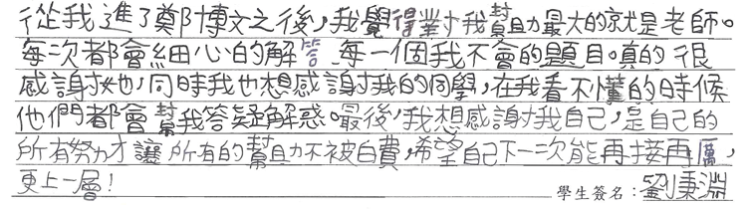 從我進了鄭博文之後，我覺得對我幫助最大的就是老師。
每次都會細心的解答每一個我不會的題目。真的很
感謝她，同時我也想感謝我的同學，在我看不懂的時候
他們都會幫我答疑解惑。最後，我想感謝我自己，是自己的
所有努力才讓所有的幫助不被白費，希望自己下一次能再接再厲，
更上一層！
學生簽名：劉秉淵